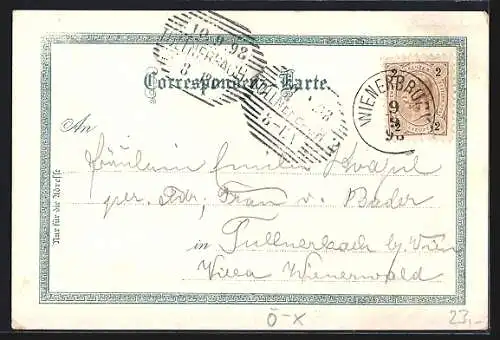 10.9.98
TULLNERBACH
8
WIENERBRUCK
9
9
98
2
2
2
Correspondenz-Karte.
An
Fräulein Emilie Kvapil
per. Adr. Frau v. Bader
in Tullnerbach bei Wien
Villa Wienerwald
Nur für die Adresse
Ö-X
23,-